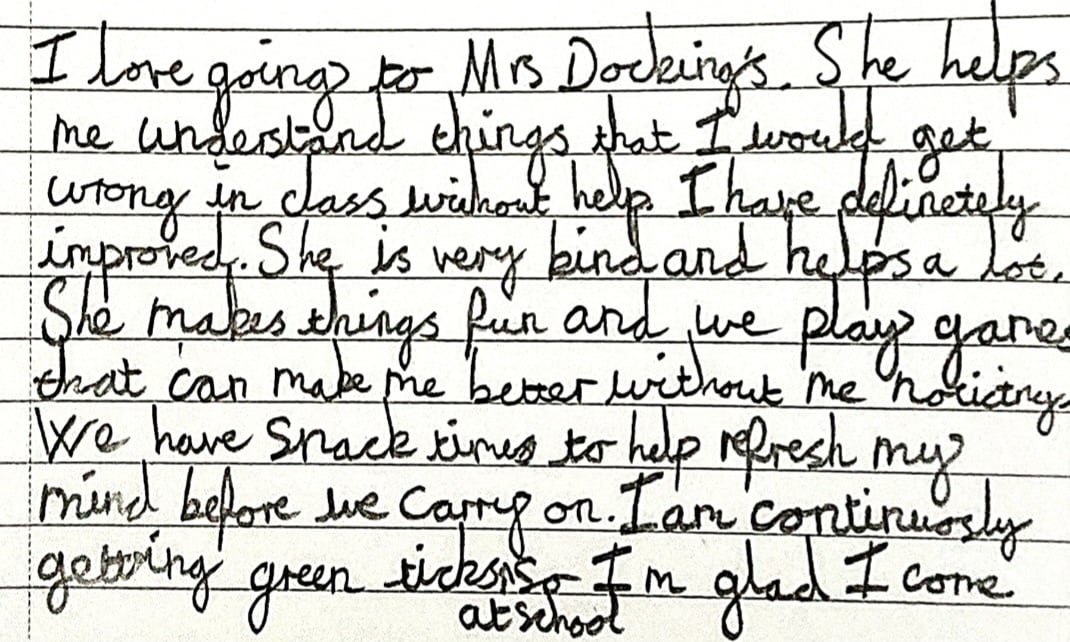 I love going to Mrs Docking's. She helps
me understand things that I would get
wrong in class without help. I have definetely
improved. She is very kind and helps a lot.
She makes things fun and we play games
that can make me better without me noticing.
We have snack times to help refresh my
mind before we carry on. I am continuosly
getting green ticks so I'm glad I come
at school